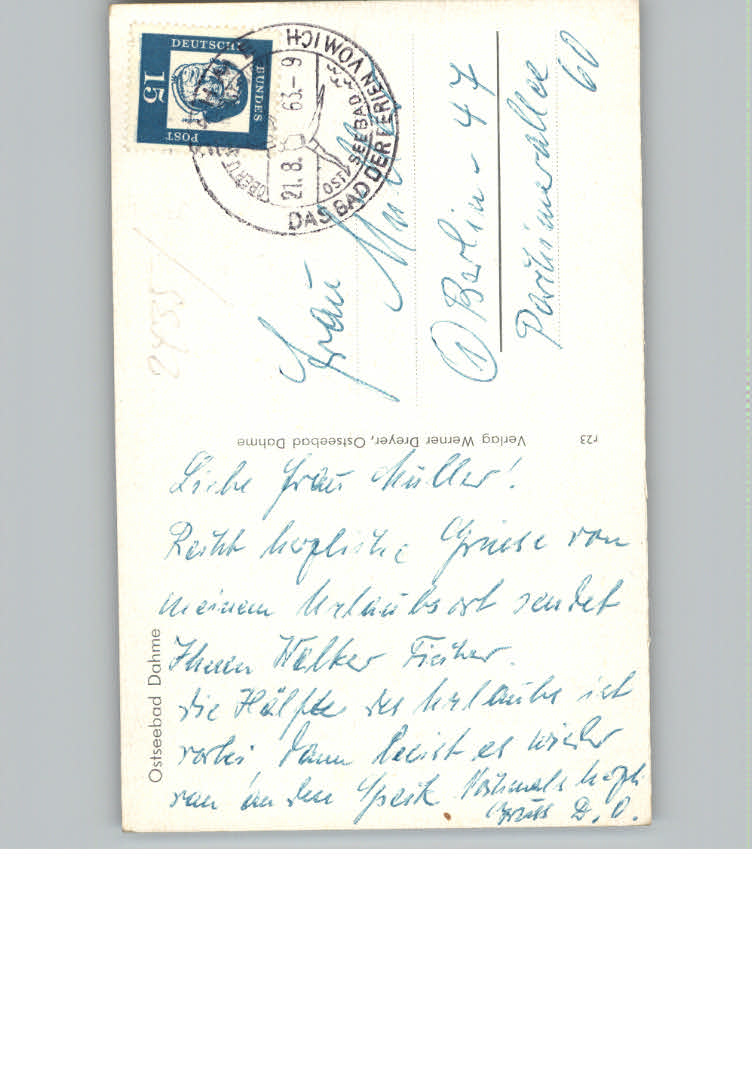 Liebe Frau Müller!
Recht herzliche Grüsse von
meinem Urlaubsort sendet
Ihnen Walter Fischer.
die Hälfte des Urlaubs ist
vorbei dann heisst es wieder
ran an den Speck Nochmals herzl.
Gruss D. O.
Ostseebad Dahme
Verlag Werner Dreyer, Ostseebad Dahme
r23
Frau Müller
(1) Berlin-47
Parchimerallee
60
DEUTSCHE
BUNDES
POST
15
DAS BAD DER FERIEN VOM ICH
OSTSEEBAD
21.8.63.-9
2435